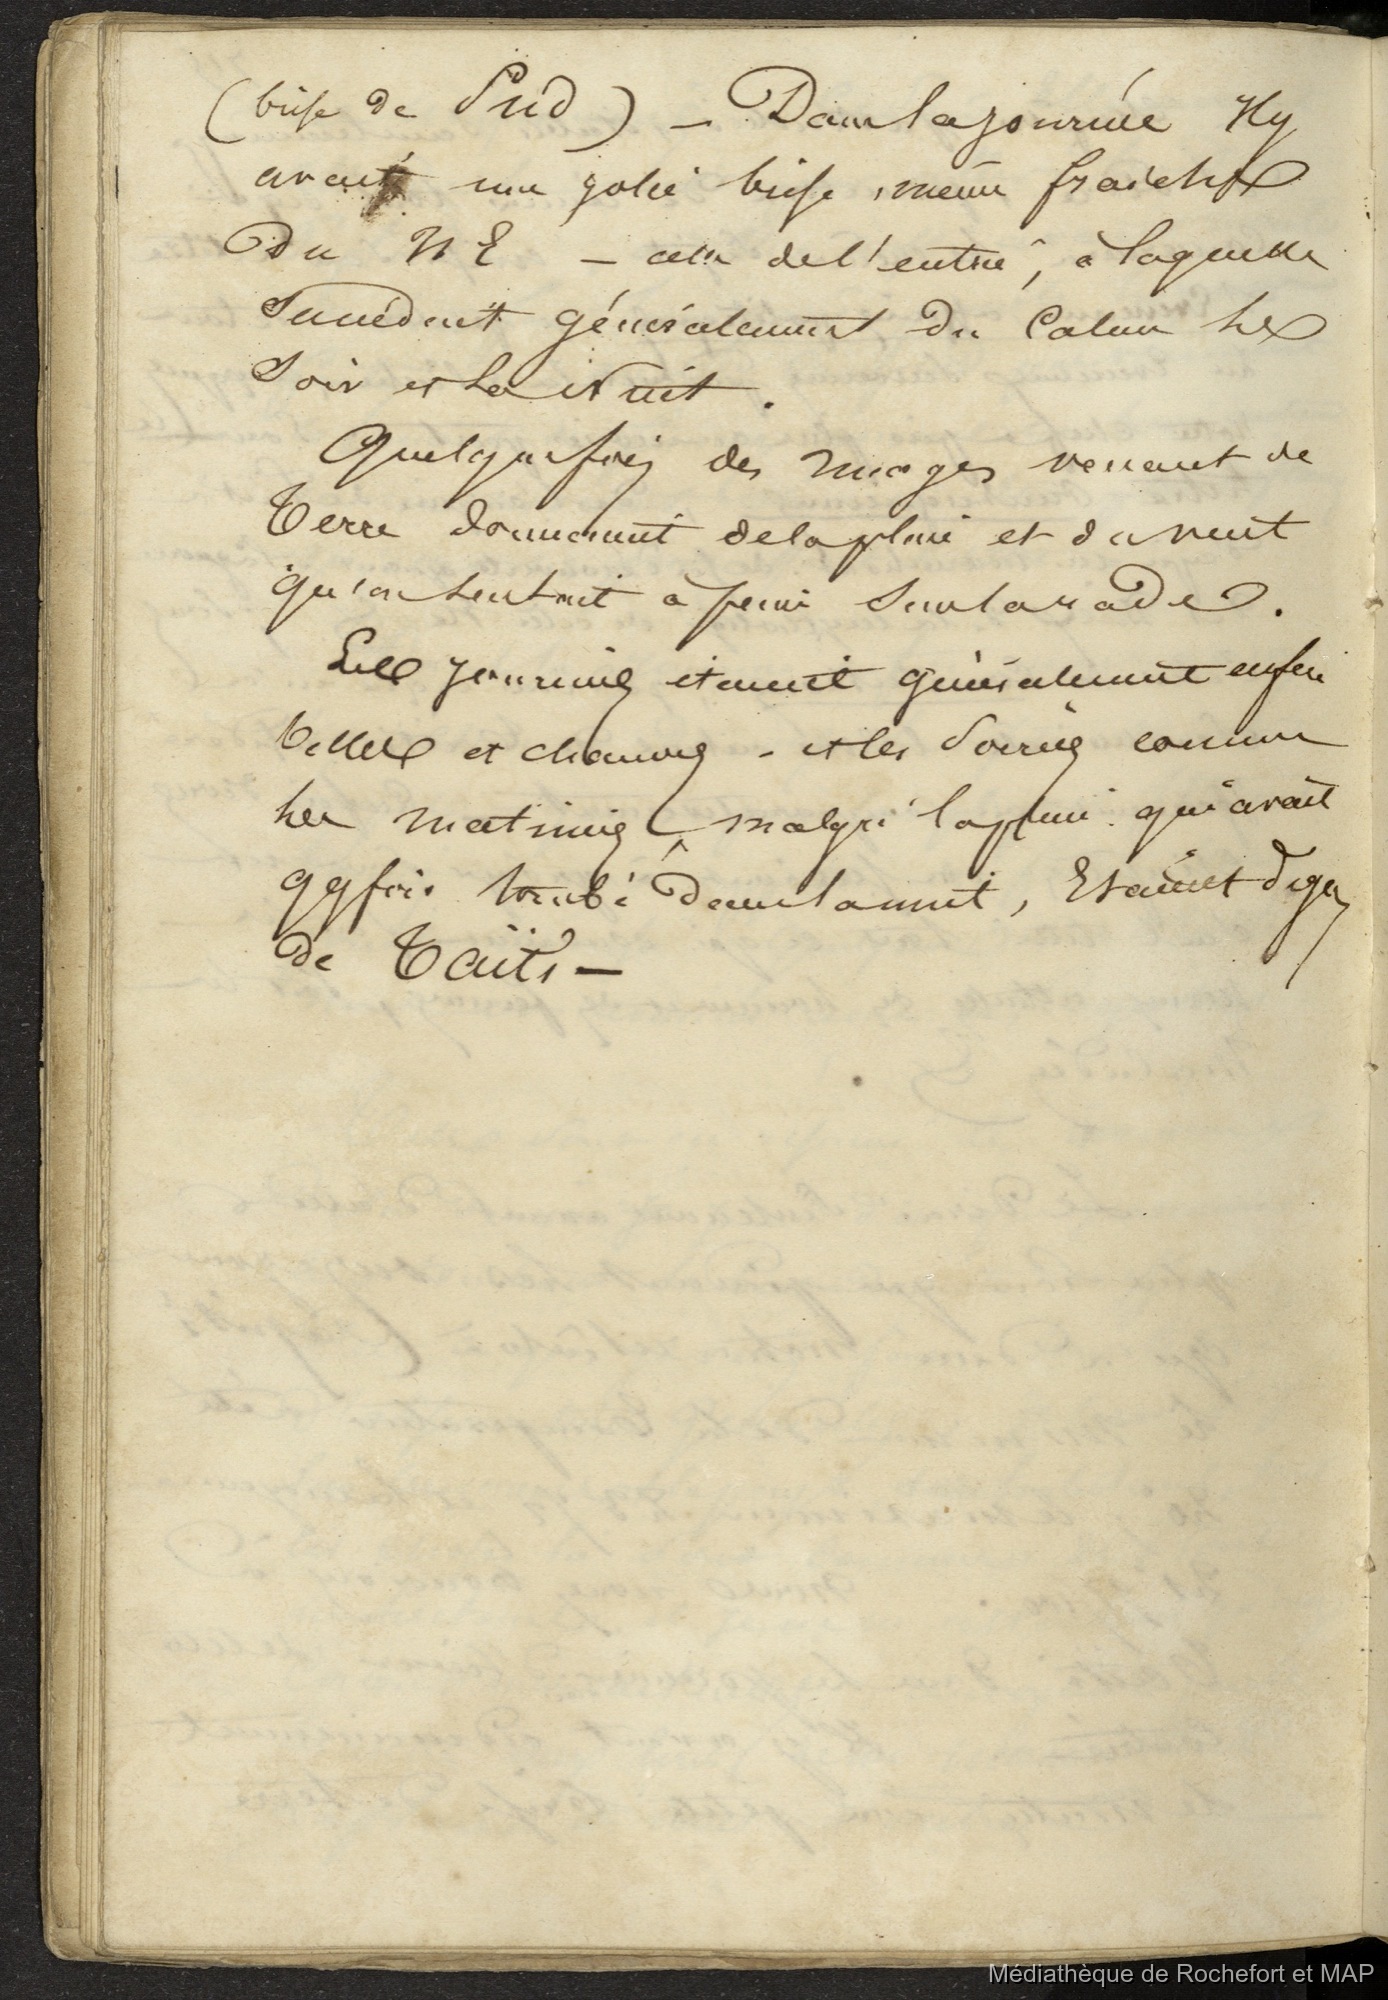 (brise de Sud) — Dans la journée Il y
avait une jolie brise, même fraiche
du NE — celle de l'entrée, à laquelle
succédait généralement du Calme le
Soir et la Nuit.
Quelquefois des nuages venant de
Terre donnaient de la pluie et du vent
qu'on sentait à peine sur la rade.
Les journées étaient généralement enfin
belles et chaudes - et les soirées comme
les matinées, malgré la pluie qui avait
qqfois tombé dans la nuit, Etaient dignes
de Taïti —
Médiathèque de Rochefort et MAP